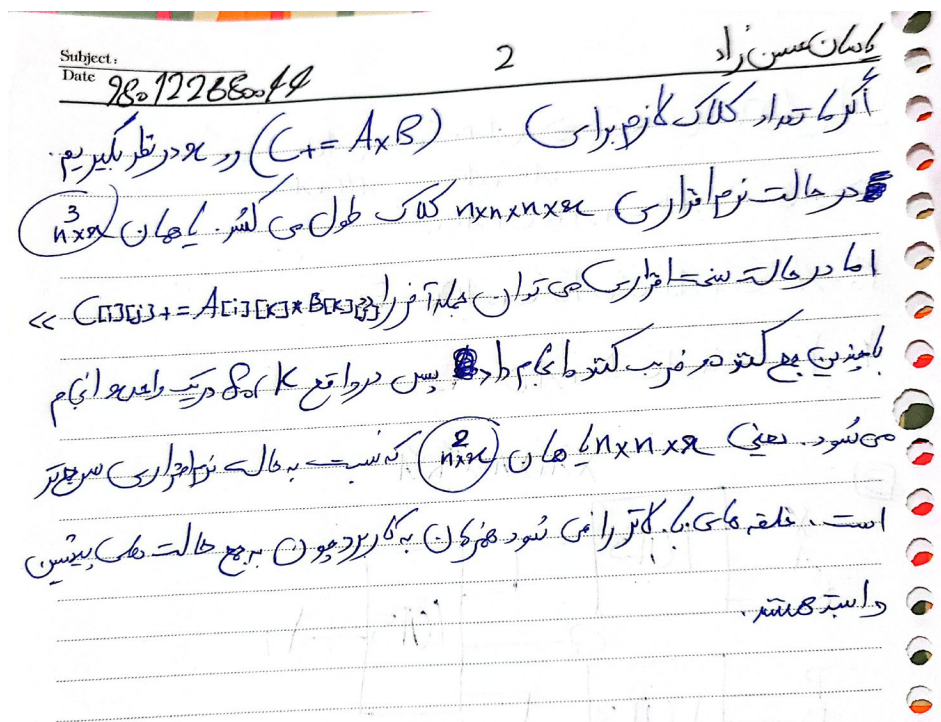 Subject:
Date 98012268044
2
یاسان حسن زاد
اگر ما تعداد کلاک لازم برای (C+=A×B) رو x در نظر بگیریم.
در حالت نرم افزاری n×n×n×x کلاک طول می کشد. یا همان n³×x
اما در حالت سخت افزاری می توان جمله آخر را C[i][j]+=A[i][k]*B[k][j] »
با چندین جمع کننده و ضرب کننده انجام داد پس در واقع for k در یک واحد x انجام
می شود. یعنی n×n×x یا همان n²×x که نسبت به حالت نرم افزاری سریع تر
است. حلقه های بالاتر را نمی شود همزمان به کار برد چون به جمع حالت های پیشین
وابسته هستند.